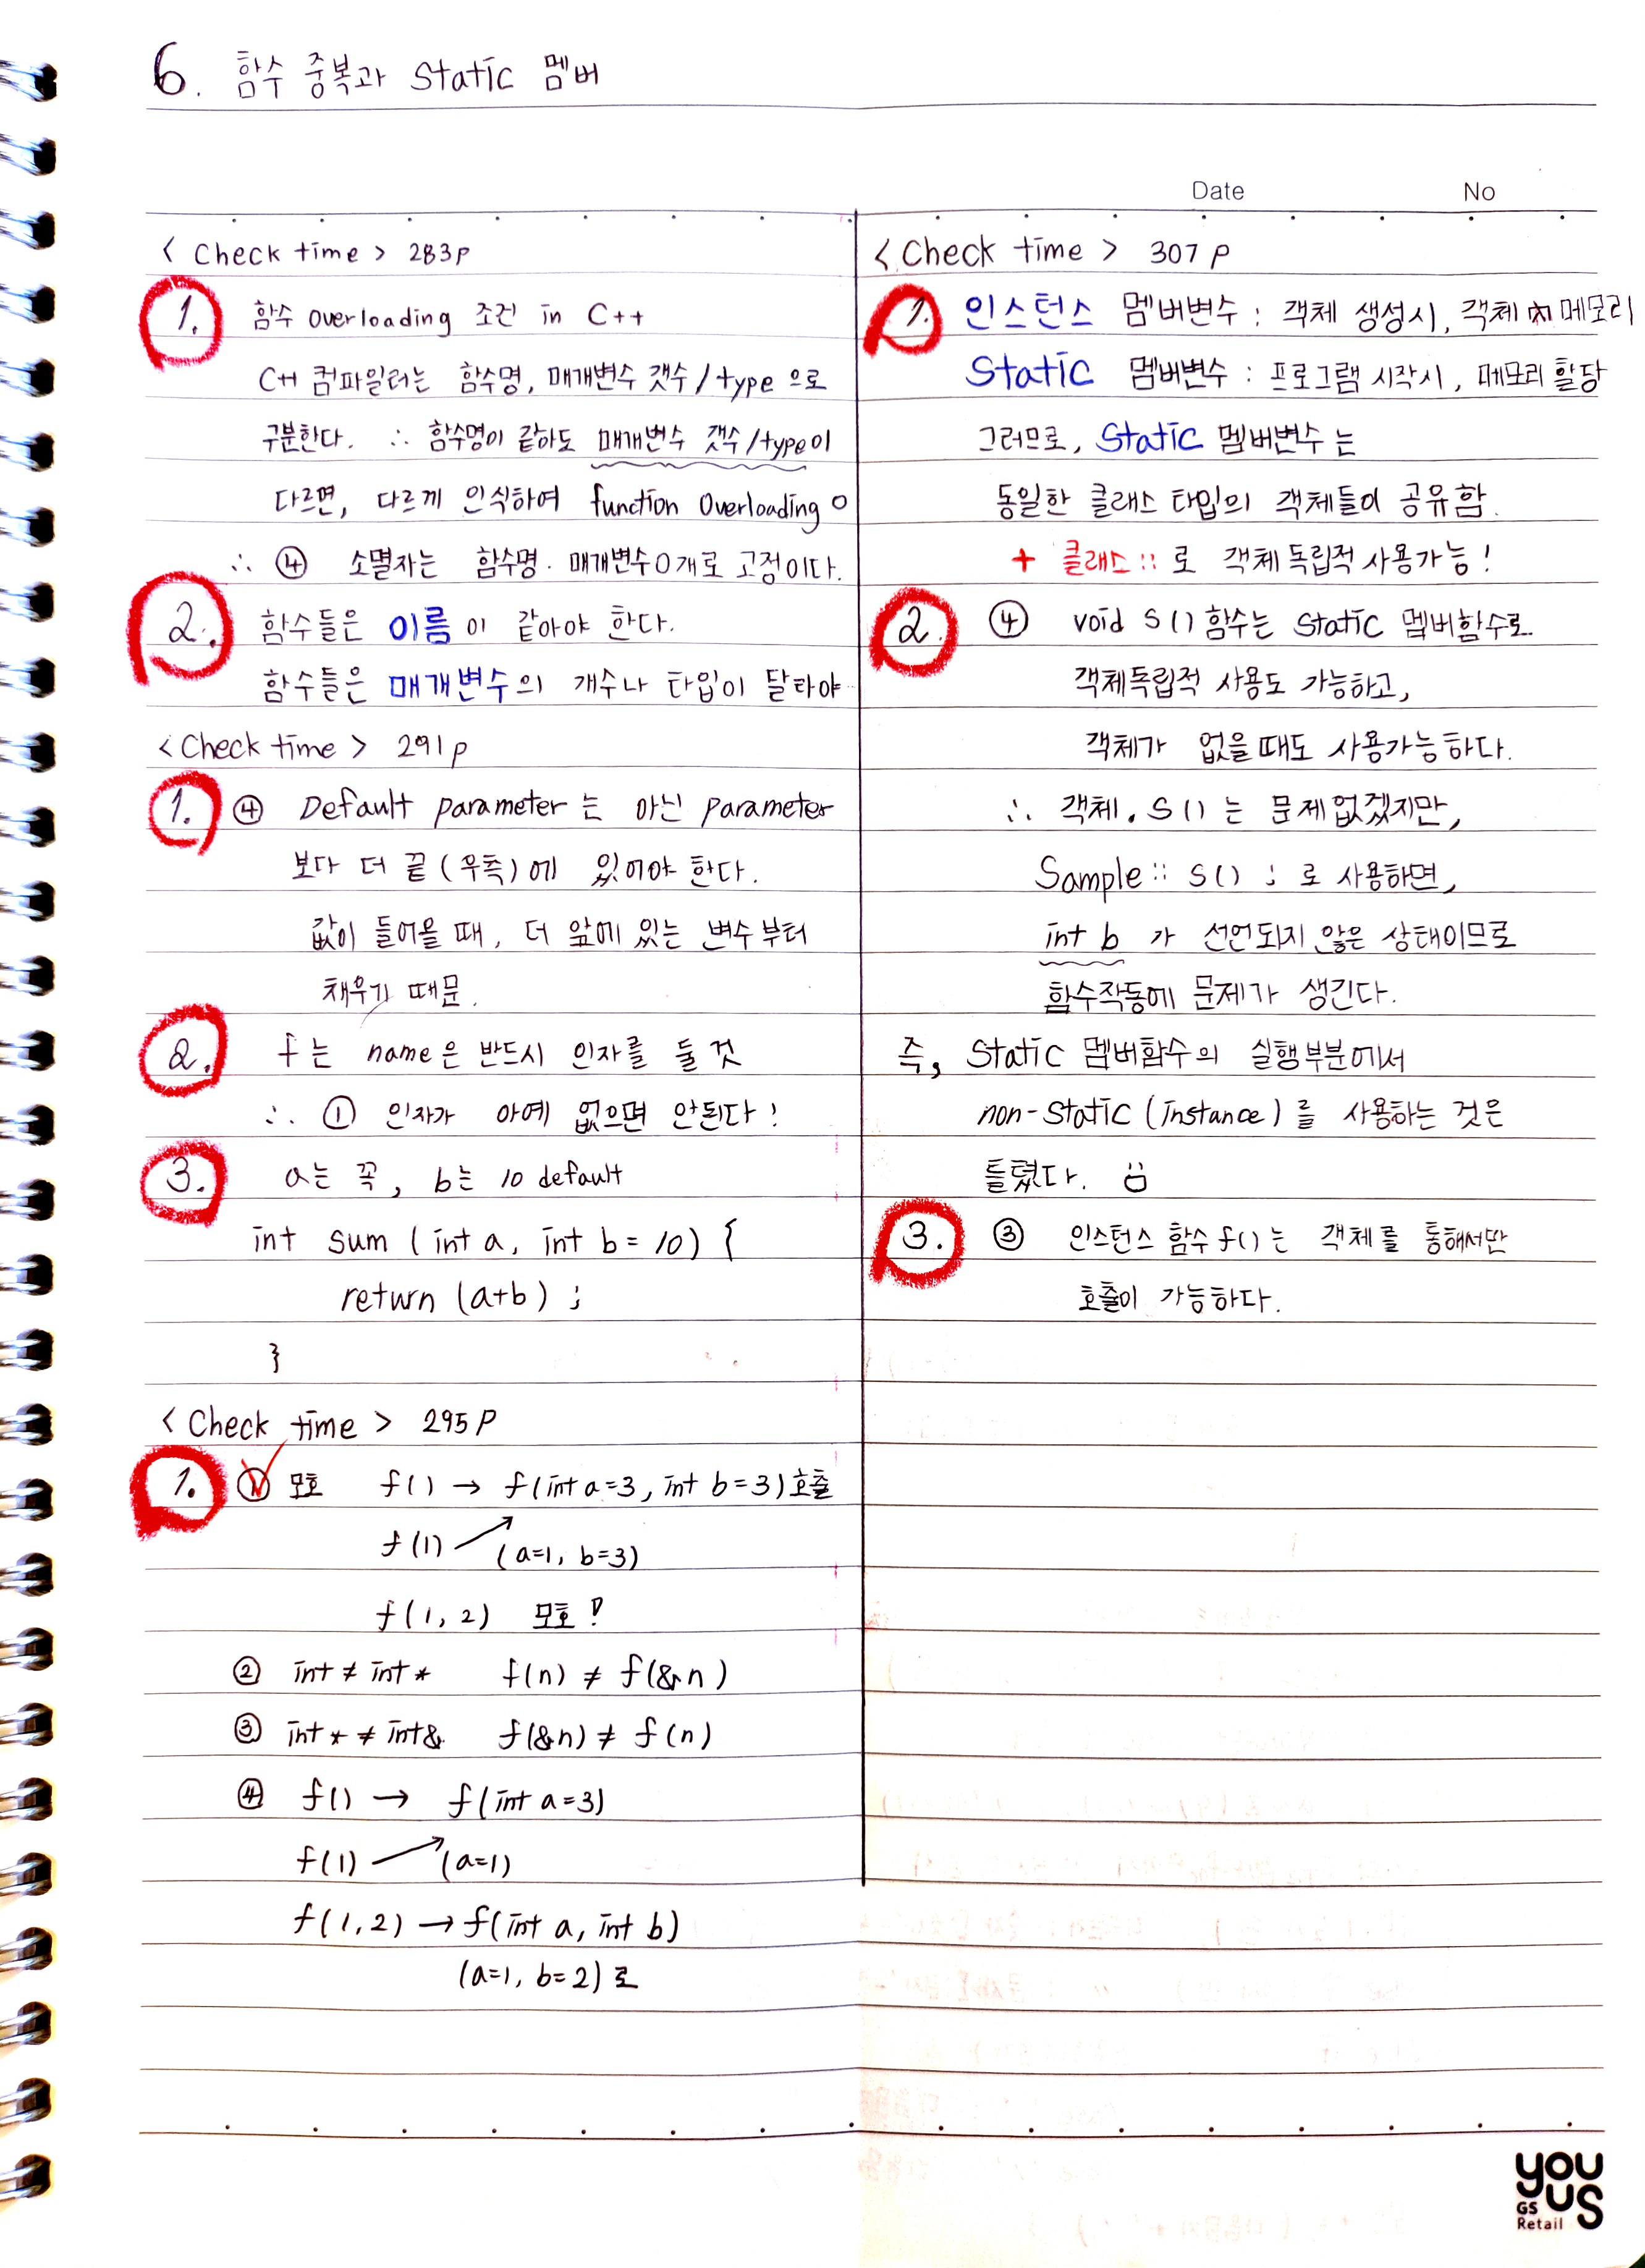 6. 함수 중복과 Static 멤버
Date No
< Check time > 283p
1. 함수 Overloading 조건 in C++
C++ 컴파일러는 함수명, 매개변수 갯수/type 으로
구분한다. ∴ 함수명이 같아도 매개변수 갯수/type이
다르면, 다르게 인식하여 function Overloading O
∴ ④ 소멸자는 함수명·매개변수 0개로 고정이다.
2. 함수들은 이름이 같아야 한다.
함수들은 매개변수의 개수나 타입이 달라야
< Check time > 291p
1. ④ Default parameter는 아닌 parameter
보다 더 끝(우측)에 있어야 한다.
값이 들어올 때, 더 앞에 있는 변수부터
채우기 때문.
2. f는 name은 반드시 인자를 둘 것
∴ ① 인자가 아예 없으면 안된다!
3. a는 꼭, b는 10 default
int sum (int a, int b = 10) {
return (a+b) ;
}
< Check time > 295P
1. ① 모호 f() → f(int a=3, int b=3) 호출
f(1) ↗ (a=1, b=3)
f(1, 2) 모호!
② int ≠ int * f(n) ≠ f(&n)
③ int * ≠ int& f(&n) ≠ f(n)
④ f() → f(int a=3)
f(1) ↗ (a=1)
f(1, 2) → f(int a, int b)
(a=1, b=2)로
< Check time > 307 p
1. 인스턴스 멤버변수 : 객체 생성시, 객체 內 메모리
Static 멤버변수 : 프로그램 시작시, 메모리 할당
그러므로, Static 멤버변수는
동일한 클래스 타입의 객체들이 공유함.
+ 클래스:: 로 객체 독립적 사용가능!
2. ④ void S() 함수는 Static 멤버함수로
객체독립적 사용도 가능하고,
객체가 없을때도 사용가능하다.
∴ 객체.S()는 문제없겠지만,
Sample:: S() ; 로 사용하면,
int b 가 선언되지 않은 상태이므로
함수작동에 문제가 생긴다.
즉, Static 멤버함수의 실행부분에서
non-Static (instance)를 사용하는 것은
틀렸다.
3. ③ 인스턴스 함수 f()는 객체를 통해서만
호출이 가능하다.
YOU
US
GS
Retail